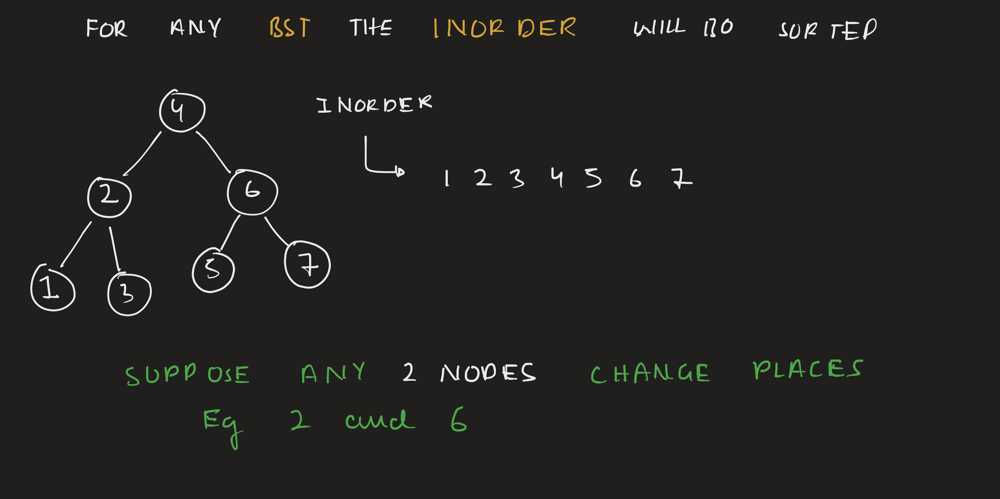 FOR ANY BST THE INORDER WILL BO SORTED
4
INORDER
2 6
1 2 3 4 5 6 7
1 3 5 7
SUPPOSE ANY 2 NODES CHANGE PLACES
Eg 2 and 6